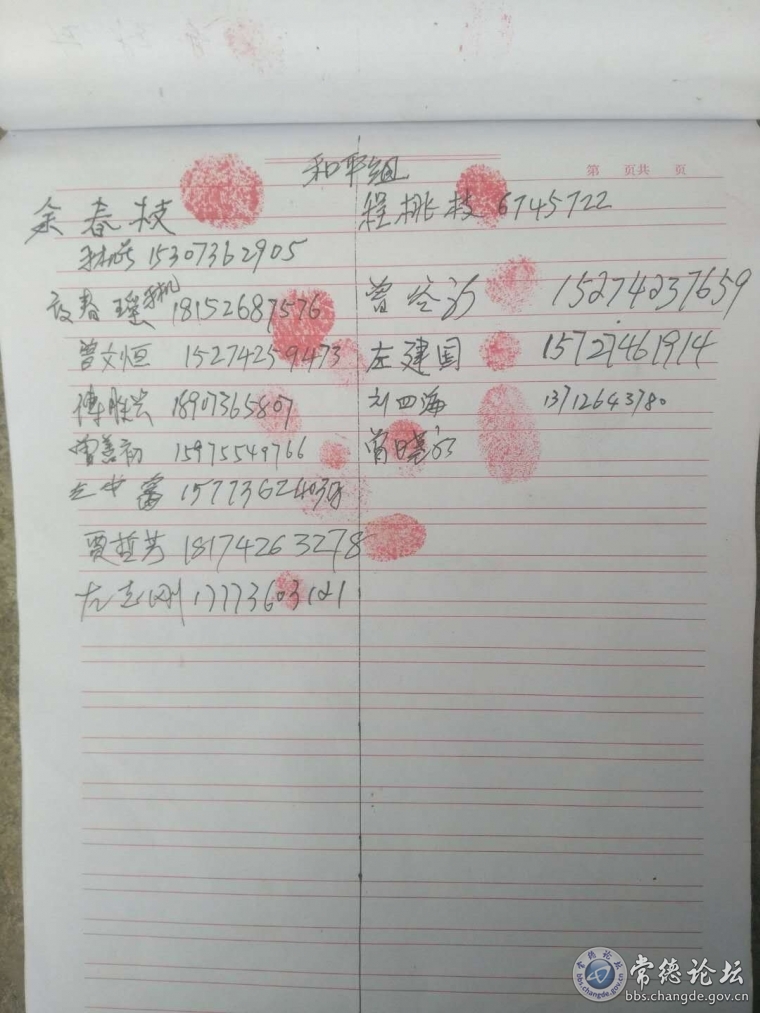 和平组
第 页共 页
余春枝
手机 15307362905
春瑶 手机 18152687576
曾文恒 15274259473
傅胜兴 18907365807
曾善初 15975549766
15773624039
贾哲芳 18174263278
左志刚 17773603121
程桃枝 6745722
曾 初 15274237659
左建国 15727461914
刘四海 13712643780
曾晓初
常德论坛
bbs.changde.gov.cn